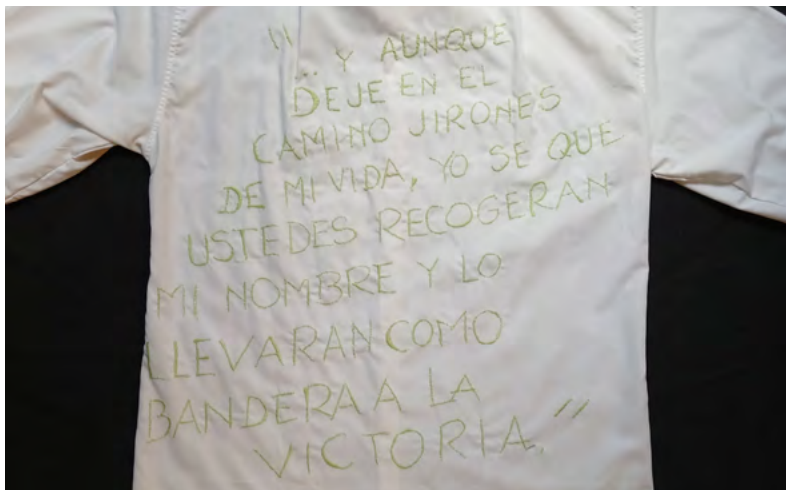 " Y AUNQUE
... DEJE EN EL
CAMINO JIRONES
DE MI VIDA, YO SE QUE
USTEDES RECOGERAN
MI NOMBRE Y LO
LLEVARAN COMO
BANDERA A LA
VICTORIA."